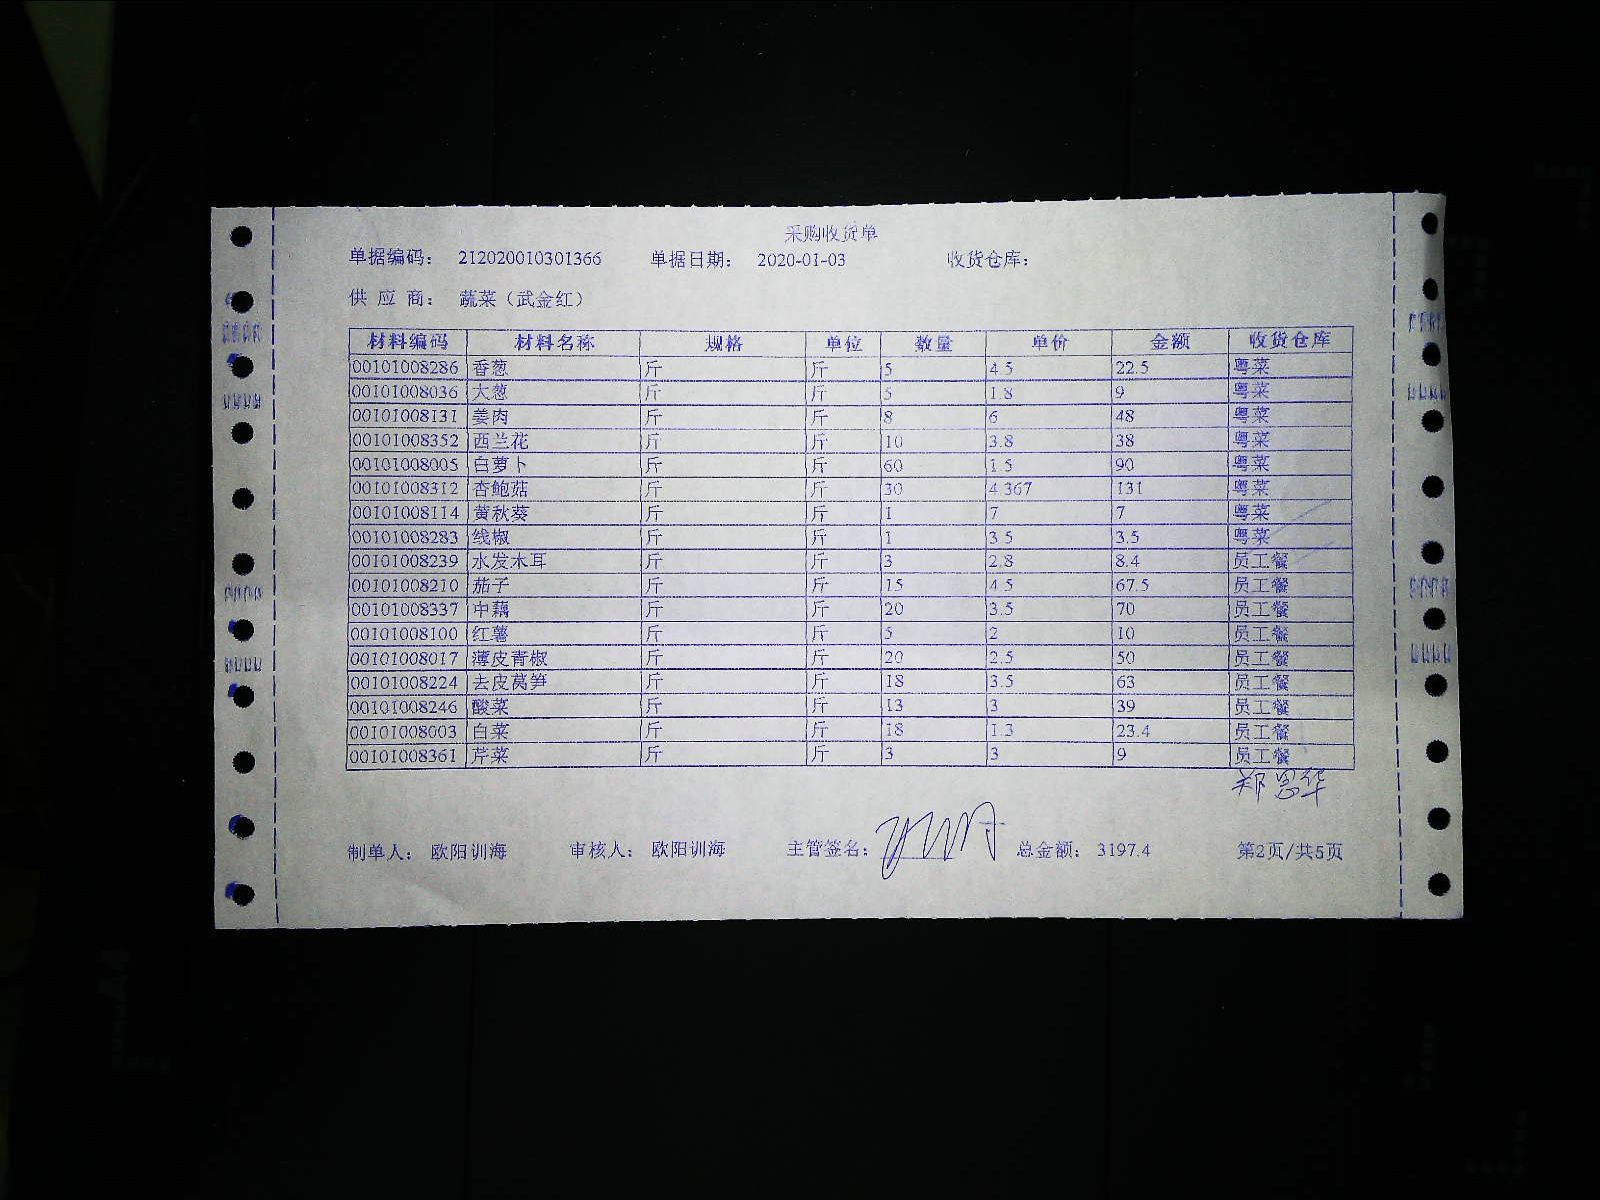 采购收货单
单据编码： 212020010301366 单据日期： 2020-01-03 收货仓库：
供 应 商： 蔬菜（武金红）
材料编码 材料名称 规格 单位 数量 单价 金额 收货仓库
00101008286 香葱 斤 斤 5 4.5 22.5 粤菜
00101008036 大葱 斤 斤 5 1.8 9 粤菜
00101008131 姜肉 斤 斤 8 6 48 粤菜
00101008352 西兰花 斤 斤 10 3.8 38 粤菜
00101008005 白萝卜 斤 斤 60 1.5 90 粤菜
00101008312 杏鲍菇 斤 斤 30 4.367 131 粤菜
00101008114 黄秋葵 斤 斤 1 7 7 粤菜
00101008283 线椒 斤 斤 1 3.5 3.5 粤菜
00101008239 水发木耳 斤 斤 3 2.8 8.4 员工餐
00101008210 茄子 斤 斤 15 4.5 67.5 员工餐
00101008337 中藕 斤 斤 20 3.5 70 员工餐
00101008100 红薯 斤 斤 5 2 10 员工餐
00101008017 薄皮青椒 斤 斤 20 2.5 50 员工餐
00101008224 去皮莴笋 斤 斤 18 3.5 63 员工餐
00101008246 酸菜 斤 斤 13 3 39 员工餐
00101008003 白菜 斤 斤 18 1.3 23.4 员工餐
00101008361 芹菜 斤 斤 3 3 9 员工餐
郑恩华
制单人： 欧阳训海 审核人： 欧阳训海 主管签名： 总金额： 3197.4 第2页/共5页